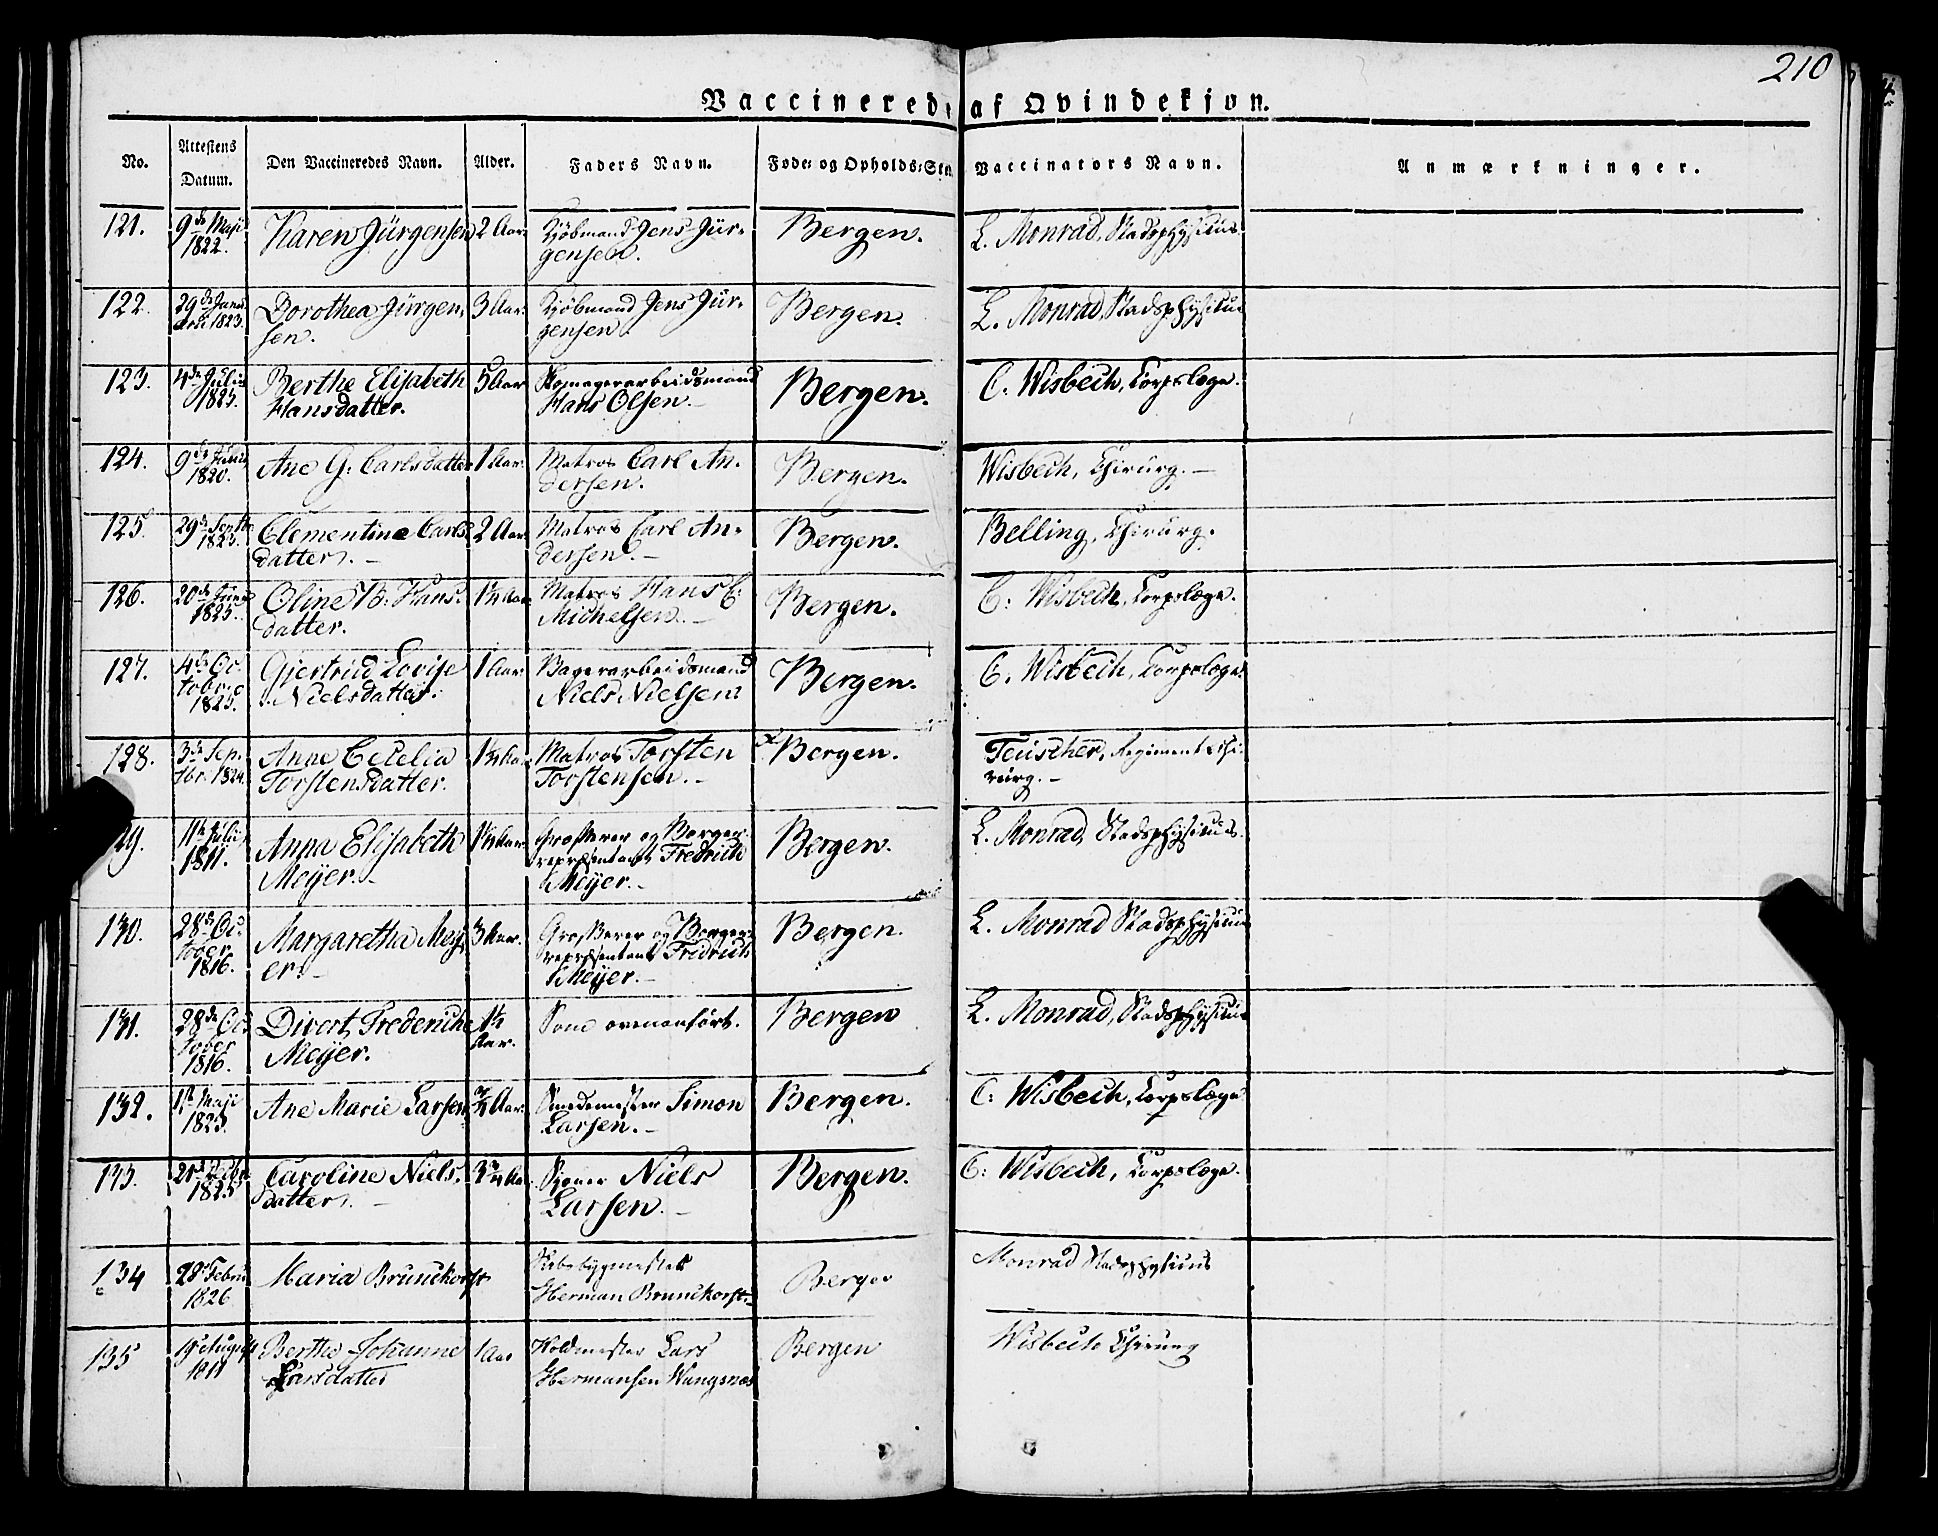 210
Vaccinerede af Qvindekjøn.
No. Attestens Datum. Den Vaccineredes Navn. Alder. Faders Navn. Føde- og Opholds-Sted Vaccinators Navn. Anmærkninger.
121. 9de Maji 1822. Karen Jürgensen 2 Aar. Kjöbmand Jens Jürgensen. Bergen. L. Monrad, Stadsphysicus.
122. 29de Januarii 1823. Dorothea Jürgensen. 3 Aar. Kjöbmand Jens Jürgensen. Bergen. L. Monrad, Stadsphysicus
123. 4de Julii 1825. Berthe Elisabeth Hansdatter. 5 Aar Skomagerarbeidsmand Hans Olsen. Bergen. C. Wisbech, Corpslæge.
124. 9de 1820. Ane G. Carlsdatter 1 Aar. Matros Carl Andersen. Bergen. Wisbech, Chirurg.
125. 29de Septbr 1825. Clementine Carlsdatter. 2 Aar. Matros Carl Andersen. Bergen. Belling, Chirurg.
126. 20de 1825. Oline B. Hansdatter. 1½ Aar. Matros Hans C. Michelsen. Bergen. C: Wisbech, Corpslæge.
127. 4de October 1825. Gjertrud Lovise Nielsdatter. 1 Aar. Bagerarbeidsmand Niels Nielsen. Bergen. C. Wisbech, Corpslæge.
128. 3de Septbr. 1824. Anne Cecelia Torstensdatter. 1½ Aar. Matros Torsten Torstensen. Bergen. Teuscher, Regimentschirurg.
29. 11te Julii 1811. Anna Elisabeth Meyer. 1½ Aar. Grosserer og Borgerrepræsentant Fredrich Meyer. Bergen. L. Monrad, Stadsphysicus.
130. 28de October 1816. Margaretha Meyer. 3 Aar. Grosserer og Borgerrepræsentant Fridrich Meyer. Bergen. L. Monrad Stadsphysicus
131. 28de October 1816. Divert Frederiche Meyer. 1½ Aar. Som ovenanfört. Bergen L. Monrad, Stadsphysicus
132. 1ste Maji 1825. Ane Marie Larsen Aar. Smedemester Simon Larsen. Bergen. C: Wisbech, Corpslæge
133. 1825 Caroline Nielsdatter. Niels Larsen. Bergen. C: Wisbech, Corpslæge.
134 28de Febru 1826 Maria Brunchorst Skibsbygmester Herman Brunchorst Bergen Monrad Stadsphysicus
135 August Berthe Johanne Larsdatter 1 Aar Lars Hermansen Wangsnes Bergen Wisbech Chirurg